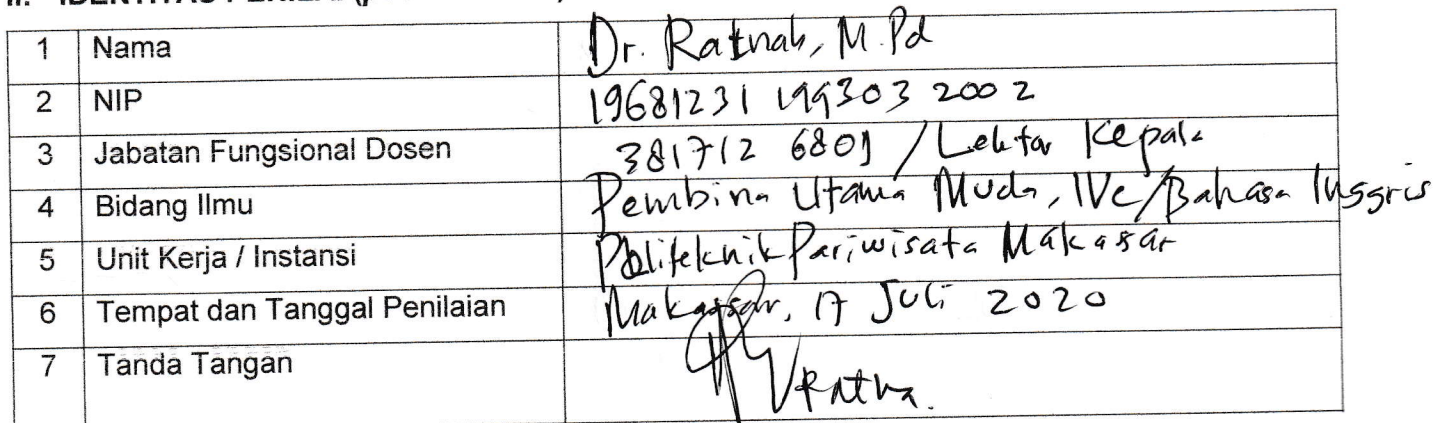 1 Nama Dr. Ratnah, M.Pd
2 NIP 19681231 199303 2002
3 Jabatan Fungsional Dosen 381712 6801 / Lektor Kepala
4 Bidang Ilmu Pembina Utama Muda, IVc/Bahasa Inggris
5 Unit Kerja / Instansi Politeknik Pariwisata Makassar
6 Tempat dan Tanggal Penilaian Makassar, 17 Juli 2020
7 Tanda Tangan Ratna.